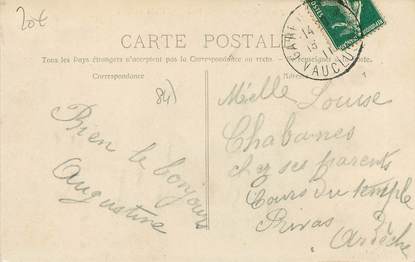 20€
CARTE POSTALE
Tous les Pays étrangers n'acceptent pas la Correspondance au recto
Correspondance
84
Rien le bonjour
Augustine
Melle Louise
Chabanes
chez ses parents
Cours du temple
Privas
Ardèche
VAUCLUSE